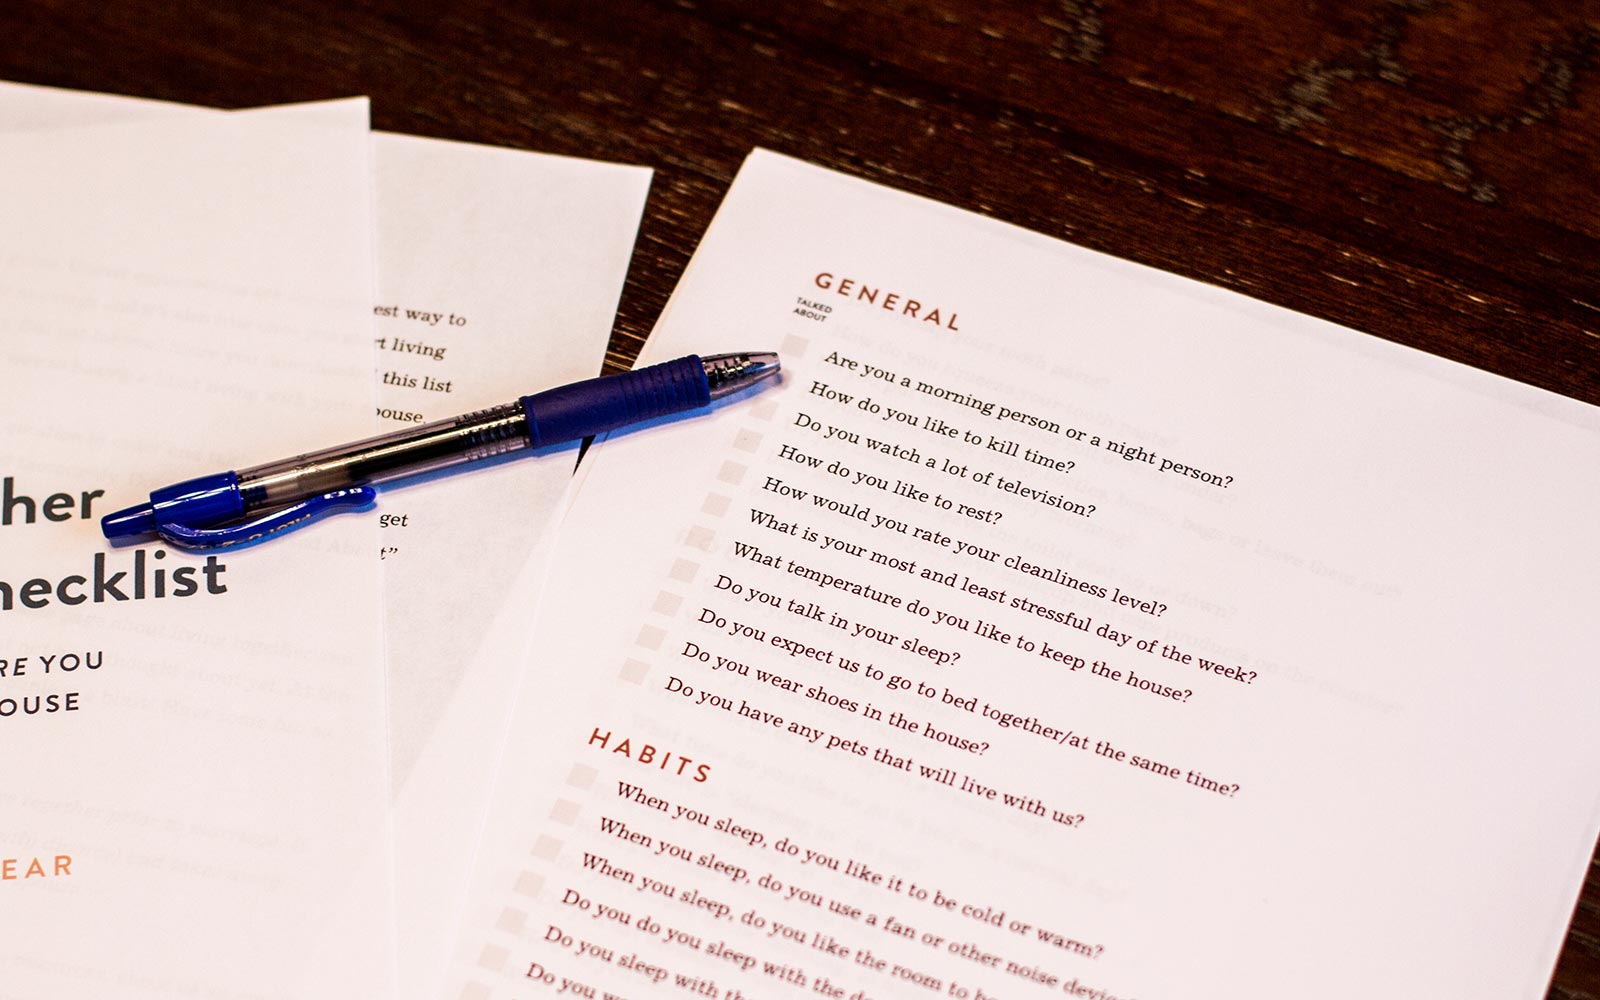 est way to
t living
this list
ouse.
get
t”
her
hecklist
RE YOU
OUSE
EAR
GENERAL
TALKED
ABOUT
Are you a morning person or a night person?
How do you like to kill time?
Do you watch a lot of television?
How do you like to rest?
How would you rate your cleanliness level?
What is your most and least stressful day of the week?
What temperature do you like to keep the house?
Do you talk in your sleep?
Do you expect us to go to bed together/at the same time?
Do you wear shoes in the house?
Do you have any pets that will live with us?
HABITS
When you sleep, do you like it to be cold or warm?
When you sleep, do you use a fan or other noise device
When you sleep, do you like the room to b
Do you do you sleep with the d
Do you sleep with th
Do you w